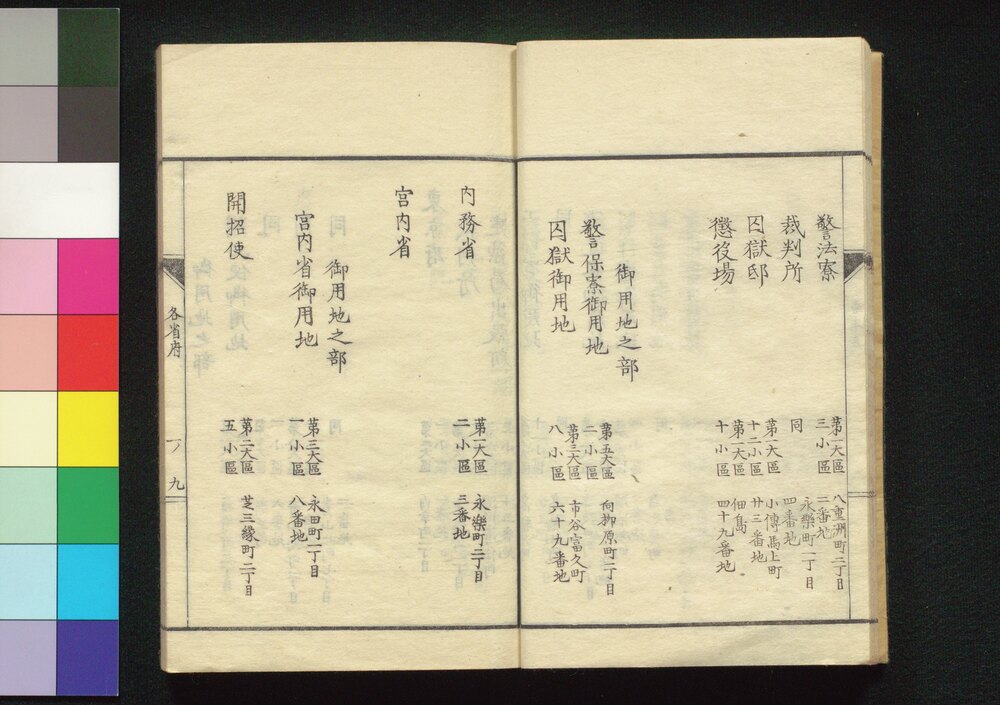 警法寮
第一大區
三小區
八重洲町二丁目
二番地
裁判所
同
永樂町一丁目
四番地
囚獄邸
第一大區
十二小區
小傳馬上町
廿三番地
懲役場
第一大區
十小區
佃島
四十九番地
御用地之部
警保寮御用地
第五大區
二小區
向柳原町二丁目
囚獄御用地
第三大區
八小區
市谷富久町
六十九番地
内務省
第一大區
二小區
永樂町二丁目
三番地
宮内省
御用地之部
宮内省御用地
第三大區
一小區
永田町一丁目
八番地
開招使
第二大區
五小區
芝三縁町二丁目
各省府
九